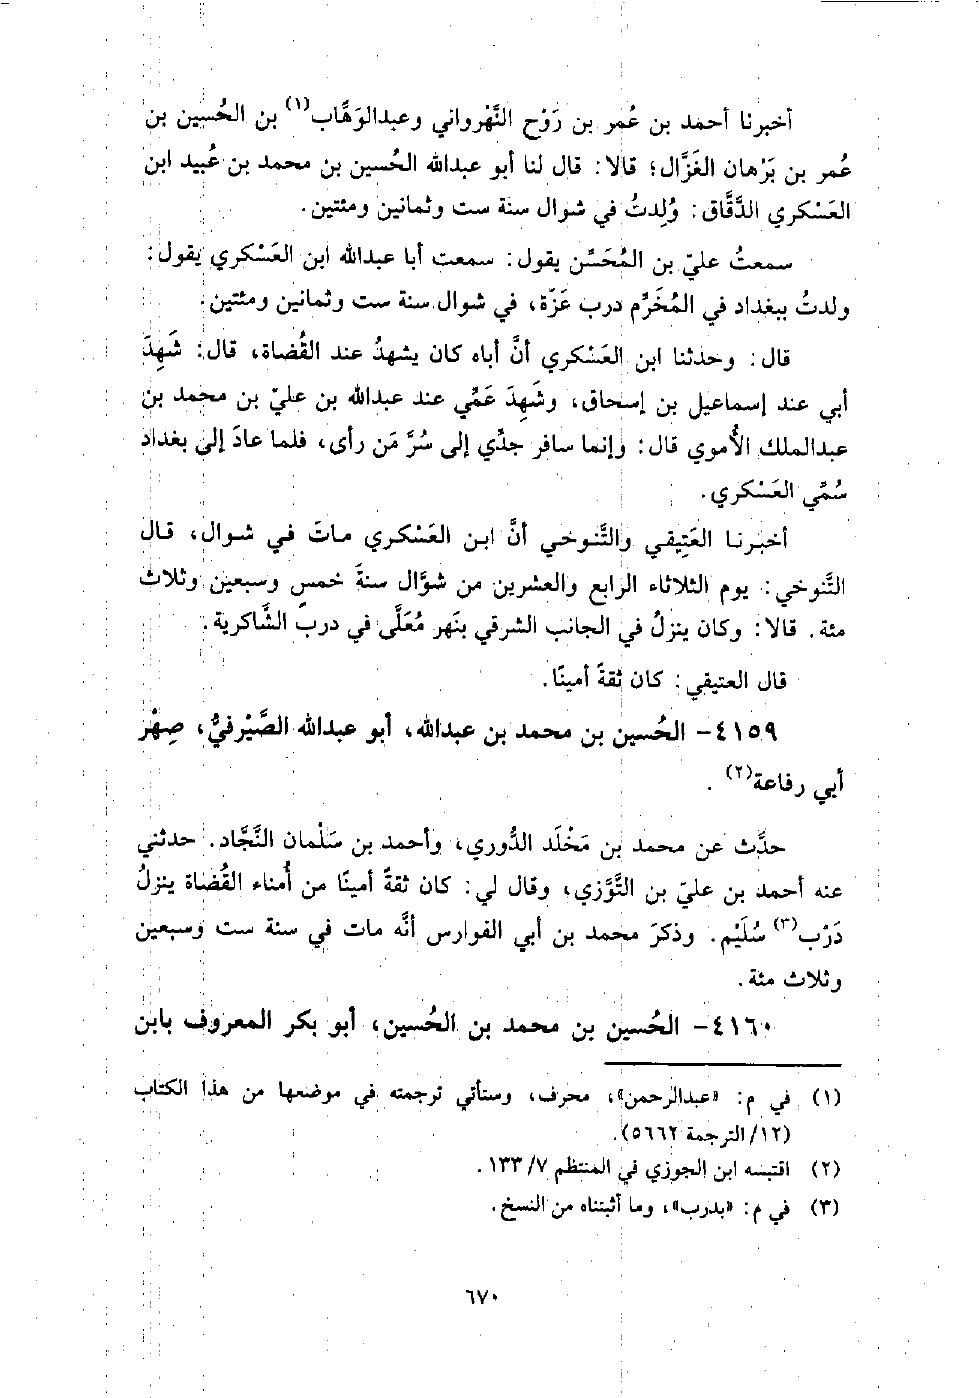 أخبرنا أحمد بن عُمر بن رَوْح النَّهْرواني وعبدالوَهَّاب(١) بن الحُسين بن
عُمر بن بَرْهان الغَزَّال؛ قالا: قال لنا أبو عبدالله الحُسين بن محمد بن عُبيد ابن
العَسْكري الدَّقَّاق: وُلِدتُ في شوال سنة ست وثمانين ومئتين.
سمعتُ عليّ بن المُحَسِّن يقول: سمعت أبا عبدالله ابن العَسْكري يقول:
ولدتُ ببغداد في المُخَرِّم درب عَزَّة، في شوال سنة ست وثمانين ومئتين.
قال: وحدثنا ابن العَسْكري أنَّ أباه كان يشهدُ عند القُضاة، قال: شَهِدَ
أبي عند إسماعيل بن إسحاق، وشَهِدَ عَمِّي عند عبدالله بن عليّ بن محمد بن
عبدالملك الأُموي قال: وإنما سافر جدِّي إلى سُرَّ مَن رأى، فلما عادَ إلى بغداد
سُمِّي العَسْكري.
أخبرنا العَتِيقي والتَّنوخي أنَّ ابن العَسْكري ماتَ في شوال، قال
التَّنوخي: يوم الثلاثاء الرابع والعشرين من شوَّال سنةَ خمسٍ وسبعين وثلاث
مئة. قالا: وكان ينزلُ في الجانب الشرقي بنَهر مُعَلَّى في دربِ الشَّاكرية.
قال العتيقي: كان ثقةً أمينًا.
٤١٥٩- الحُسين بن محمد بن عبدالله، أبو عبدالله الصَّيْرفيُّ، صِهْر
أبي رفاعة(٢).
حدَّث عن محمد بن مَخْلَد الدُّوري، وأحمد بن سَلْمان النَّجَّاد. حدثني
عنه أحمد بن عليّ بن التَّوَّزي، وقال لي: كان ثقةً أمينًا من أُمناء القُضاة ينزلُ
دَرْب(٣) سُلَيْم. وذكرَ محمد بن أبي الفوارس أنَّه مات في سنة ست وسبعين
وثلاث مئة.
٤١٦٠- الحُسين بن محمد بن الحُسين، أبو بكر المعروف بابن
(١) في م: «عبدالرحمن»، محرف، وستأتي ترجمته في موضعها من هذا الكتاب
(١٢/ الترجمة ٥٦٦٢).
(٢) اقتبسه ابن الجوزي في المنتظم ٧/ ١٣٣.
(٣) في م: «بدرب»، وما أثبتناه من النسخ.
٦٧٠